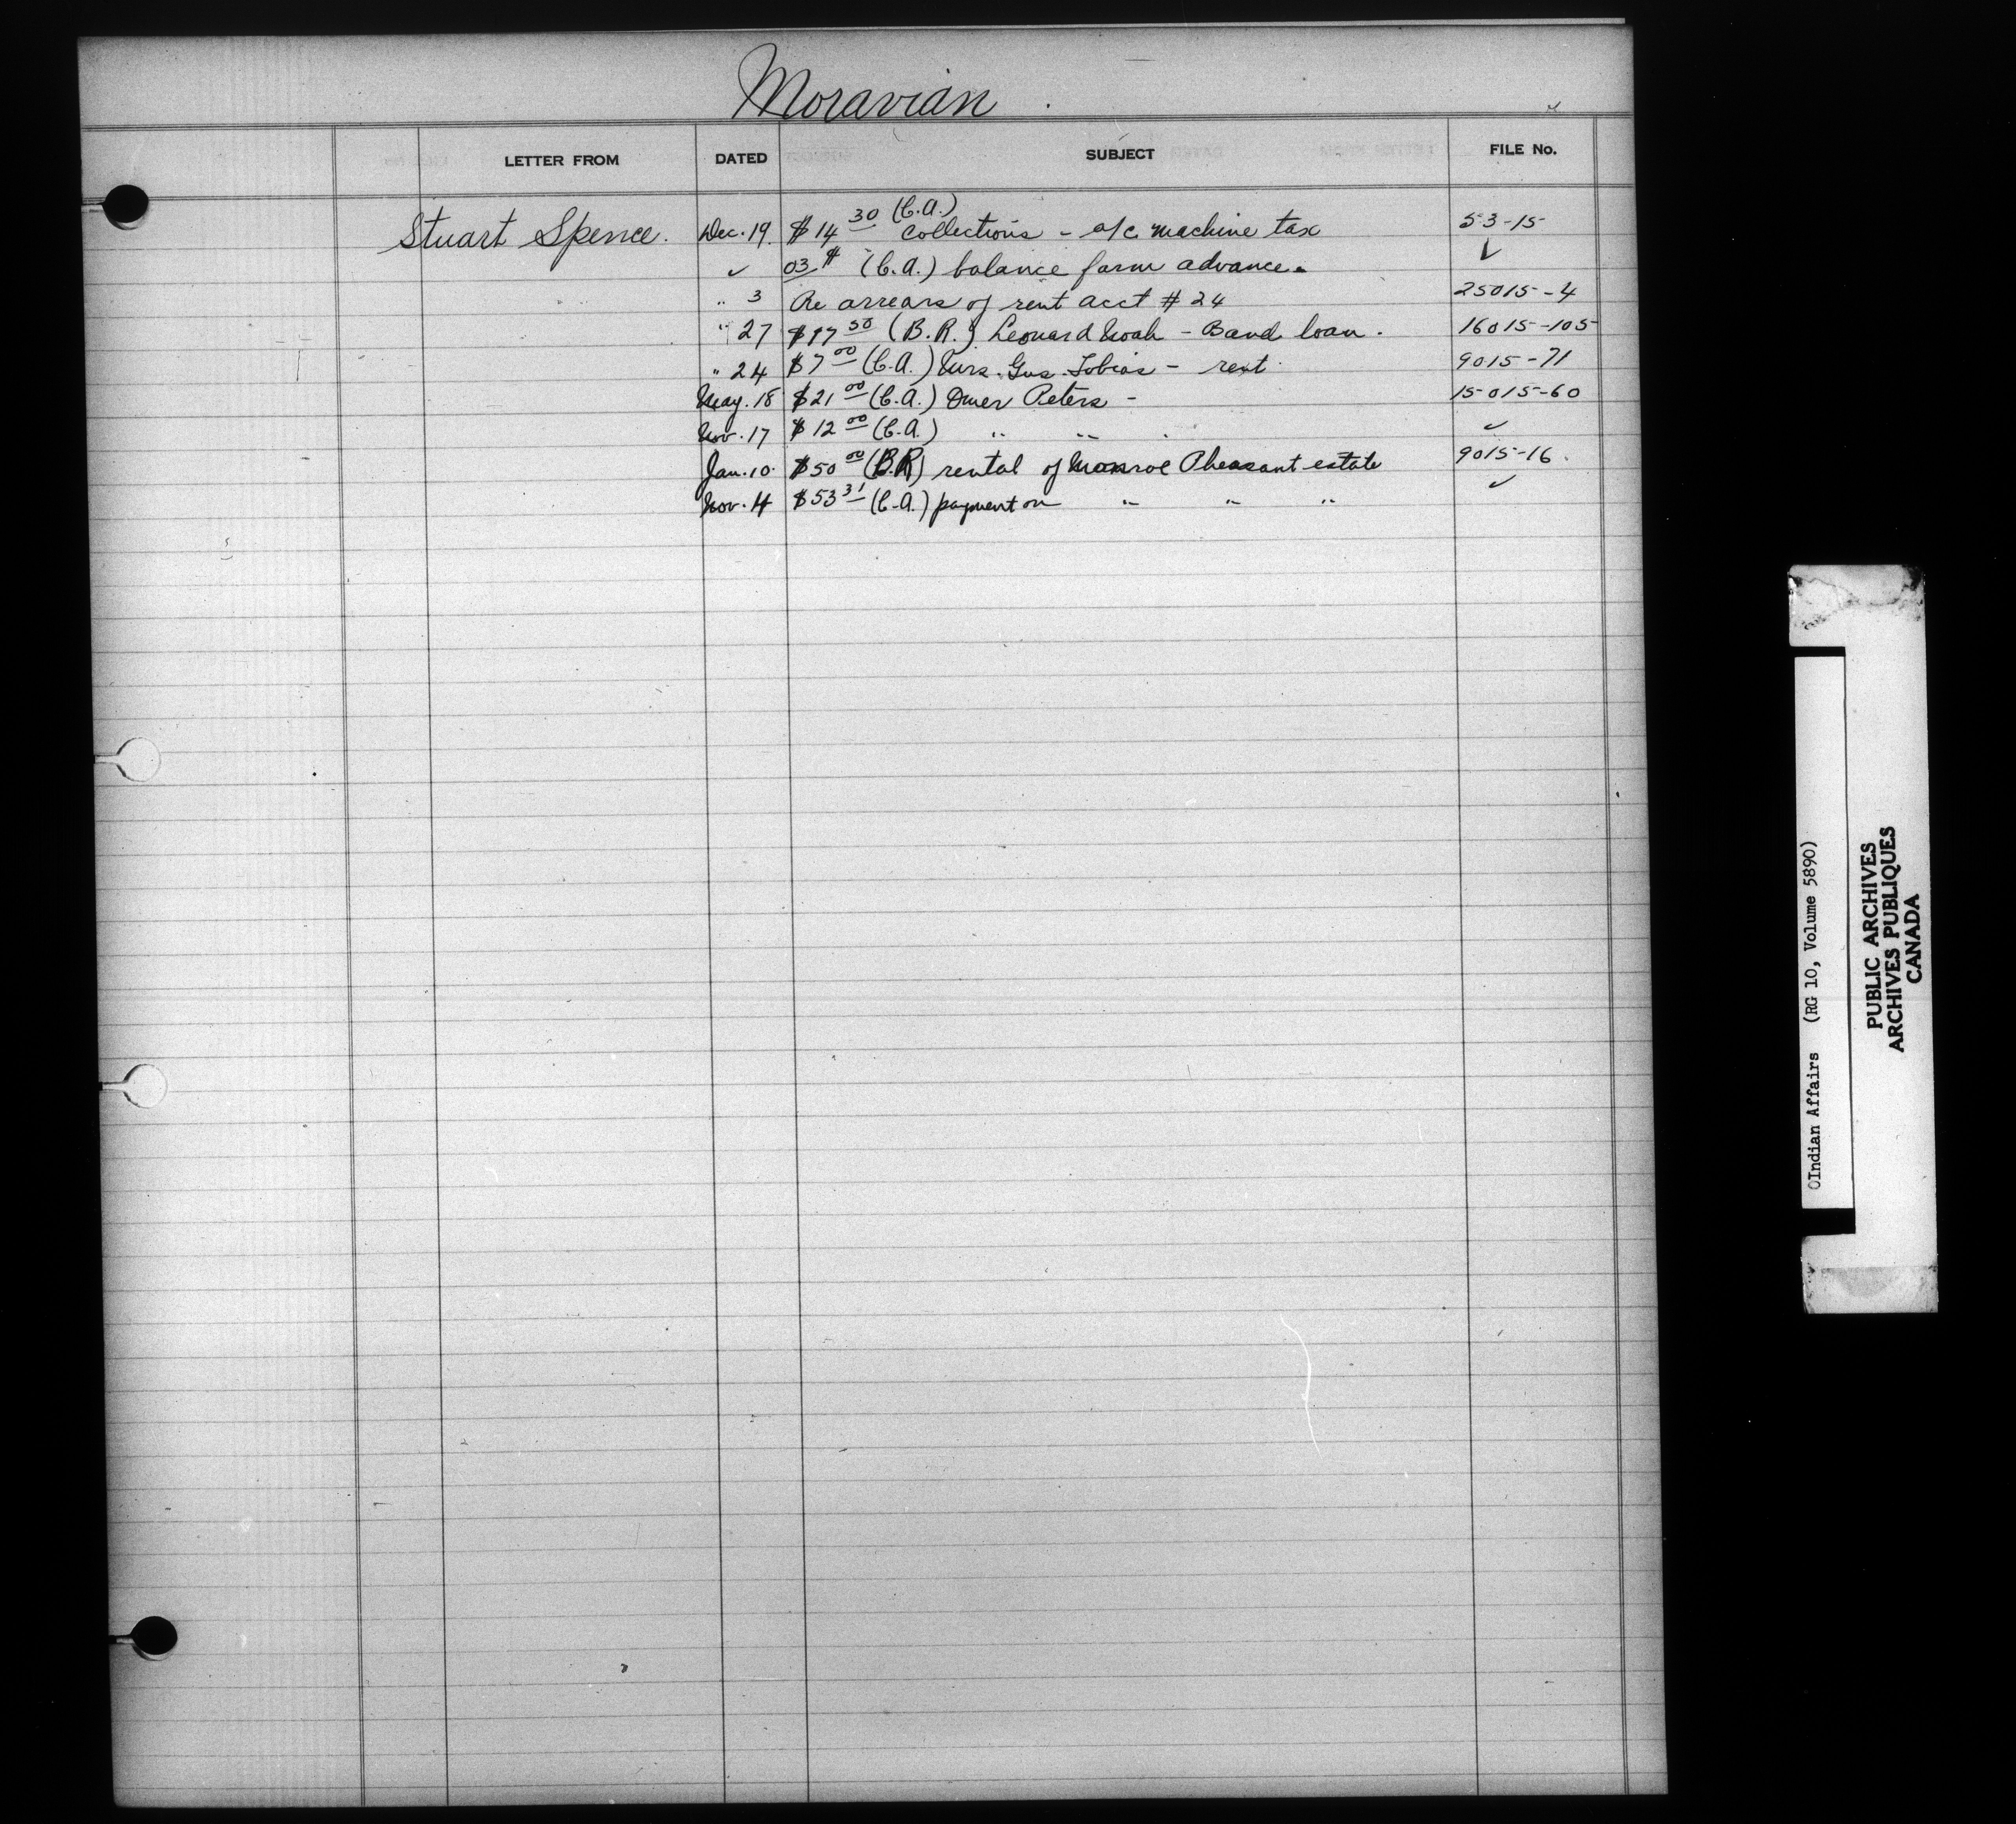 Moravian
LETTER FROM DATED SUBJECT FILE No.
Stuart Spence. Dec. 19. $14 30 (C.A.) Collections - a/c machine tax 53-15
✓ 03 ¢ (C.A.) balance farm advance. ✓
" 3 Re arrears of rent acct # 24 25015-4
" 27 $17 50 (B.R.) Leonard Noah - Band loan. 16015-105
" 24 $7 00 (C.A.) Mrs. Gus Tobias - rent 9015-71
May. 18 $21 00 (C.A.) Omer Peters - 15015-60
Nov. 17 $12 00 (C.A.) " " . ✓
Jan. 10. $50 00 (B.R) rental of Monroe Pheasant estate 9015-16.
Nov. 4 $53 31 (C.A.) payment on " " " ✓
OIndian Affairs (RG 10, Volume 5890)
PUBLIC ARCHIVES
ARCHIVES PUBLIQUES
CANADA